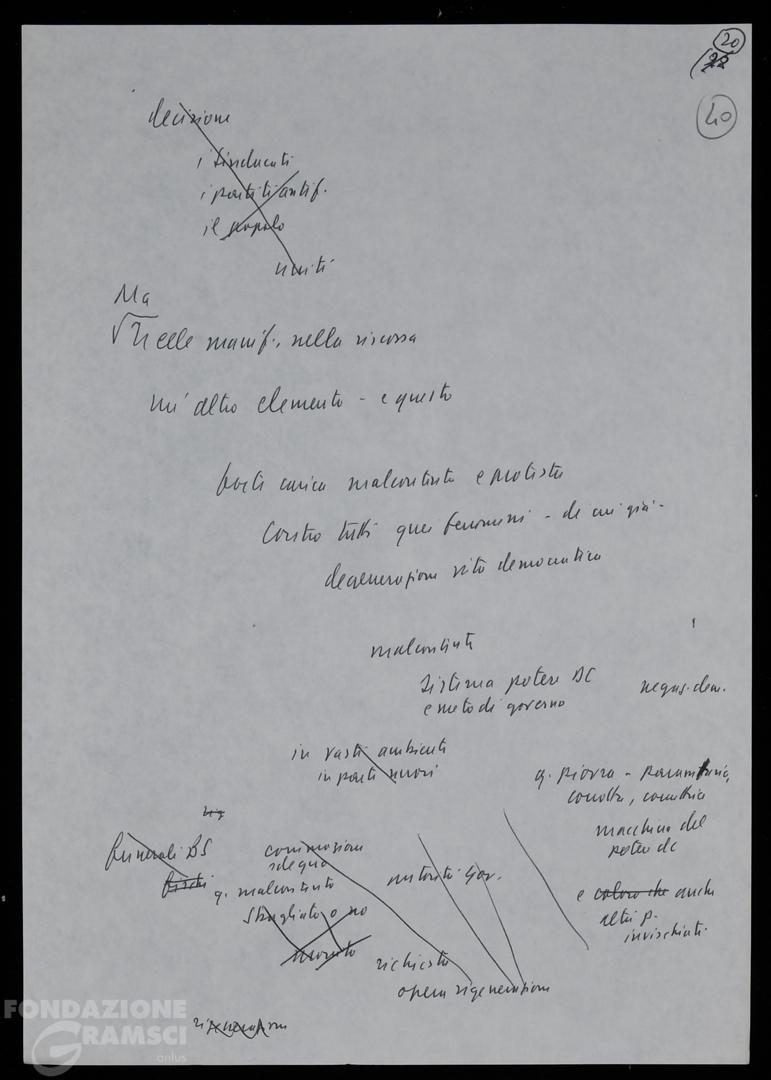 20
22
40
decisione
i sindacati
i partiti antif.
il popolo
uniti
Ma
Nelle manif., nella riscossa
un altro elemento - e questo
forte carica malcontento e protesta
contro tutti quei fenomeni - di cui già -
degenerazione vita democratica
malcontento
sistema potere DC
e metodi governo
negaz. dem.
in vasti ambienti
in parti nuovi
q. piovra -
macchina del
potere dc
e coloro che anche
altri p.
invischiati.
funerali BS
fischi
commozione
sdegno
q. malcontento
sbagliato o no
autorità gov.
richiesta
opera rigenerazione
rigenerazione
FONDAZIONE
GRAMSCI
onlus